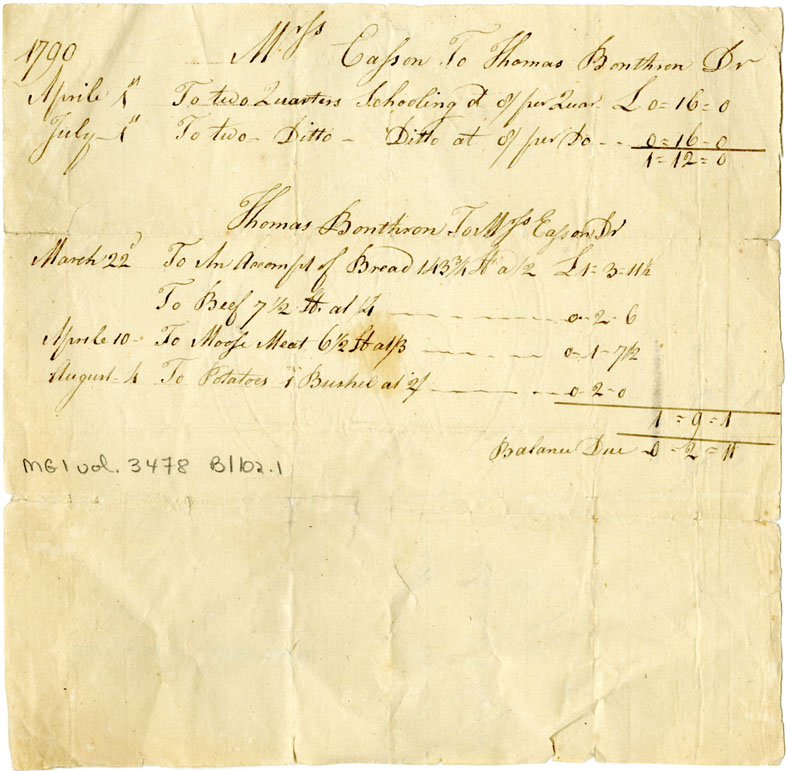 1790 Mrss Easson To Thomas Bonthron Dr
Aprile 1st To two Quarters Schooling d 8/ per Quar. L 0=16=0
July 1st To two Ditto Ditto at 8/ per Do 0=16=0
1=12=0
Thomas Bonthron To Mrss Easson Dr
March 22d To An Accompt of Bread 143¾ lt a /2 L 1=3=11½
To Beef 7½ lt. at /4 0-2-6
Aprile 10 To Moose Meat 6½ lt at /3 0-1-7½
August 4 To Potatoes 1 Bushel at 2/ 0-2-0
1=9=1
Balance Due 0-2=11
MG1 vol. 3478 B/102.1